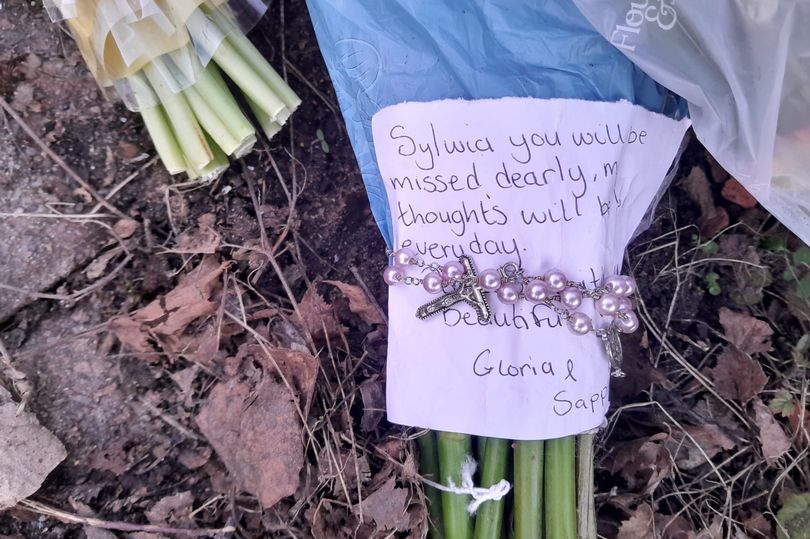 Sylwia you will be
missed dearly, m
thoughts will b
everyday.
beautifu
Gloria &
Sapp
Flow
&